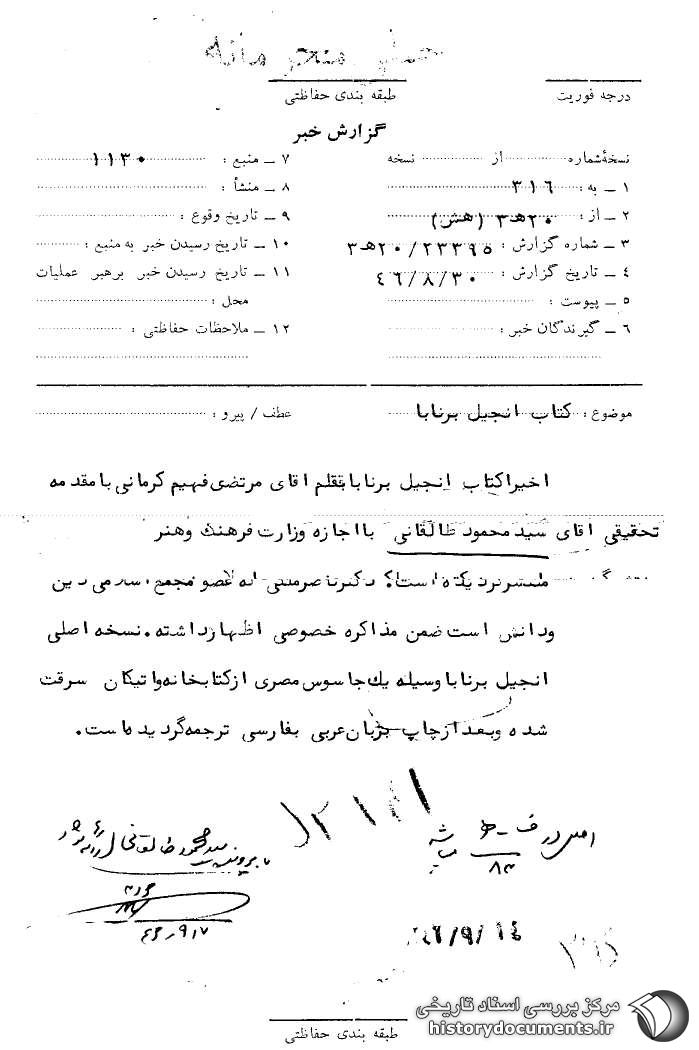 خیلی محرمانه
درجه فوریت
طبقه بندی حفاظتی
گزارش خبر
نسخهٔ شماره از نسخه
۱ ـ به : ۳۱۶
۲ ـ از : ۲۰ ه‍ ۳ (هش)
۳ ـ شماره گزارش : ۲۳۳۹۵ / ۲۰ ه‍ ۳
۴ ـ تاریخ گزارش : ۴۶/۸/۳۰
۵ ـ پیوست :
۶ ـ گیرندگان خبر :
۷ ـ منبع : ۱۱۳۰
۸ ـ منشأ :
۹ ـ تاریخ وقوع :
۱۰ ـ تاریخ رسیدن خبر به منبع :
۱۱ ـ تاریخ رسیدن خبر برهبر عملیات
محل :
۱۲ ـ ملاحظات حفاظتی :
موضوع : کتاب انجیل برنابا
عطف / پیرو :
اخیرا کتاب انجیل برنابا بقلم اقای مرتضی فهیم کرمانی با مقدمه
تحقیقی اقای سید محمود طالقانی با اجازه وزارت فرهنگ وهنر
منتشر گردیده است. دکتر که عضو مجمع اسلامی دین
ودانش است ضمن مذاکره خصوصی اظهار داشته. نسخه اصلی
انجیل برنابا وسیله یك جاسوس مصری از کتابخانه واتیکان سرقت
شده وبعد از چاپ بزبان عربی بفارسی ترجمه گردیده است.
اصل در ف ـ ط
۸۳
سید محمود طالقانی
۴۶/۹/۱۴
۴۶٫۹٫۱۷
طبقه بندی حفاظتی
مرکز بررسی اسناد تاریخی
historydocuments.ir